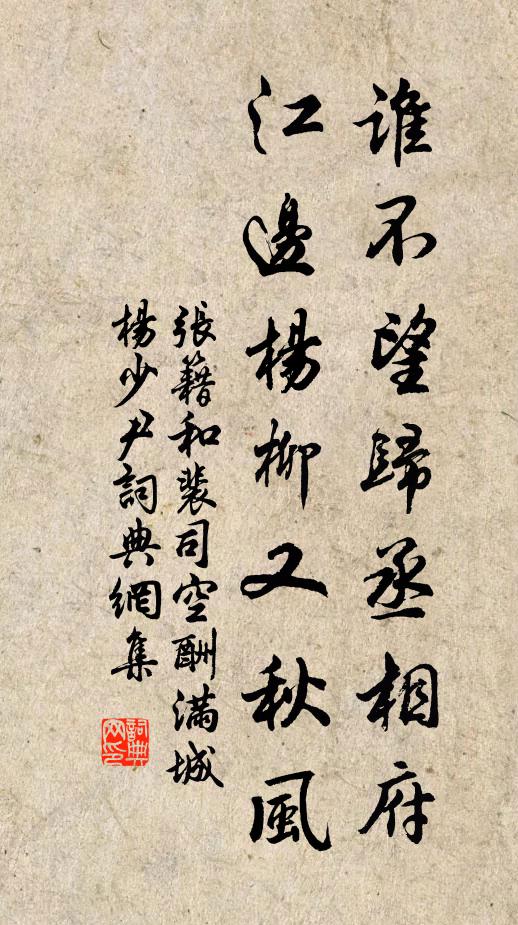 誰不望歸丞相府
江邊楊柳又秋風
張籍和裴司空酬滿城
楊少尹詞典網集
詞典
网印